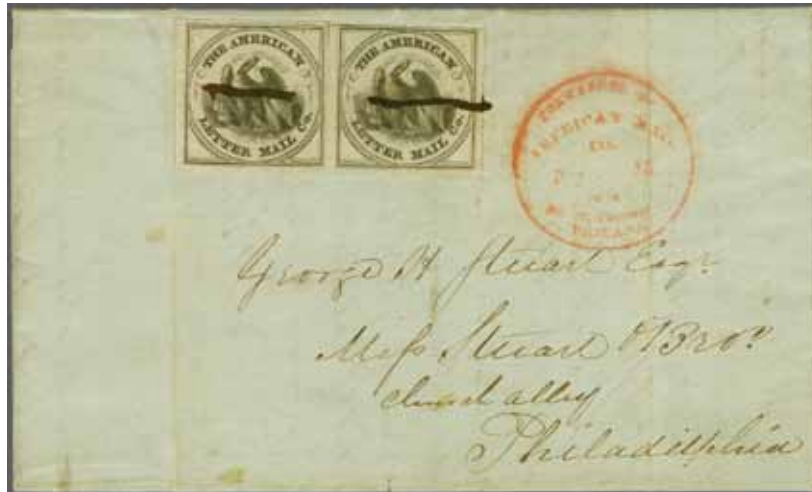 THE AMERICAN
LETTER MAIL Co.
THE AMERICAN
LETTER MAIL Co.
AMERICAN MAIL
PHILADA
George H Stuart Esqr
Mess Stuart & Bror
church alley
Philadelphia